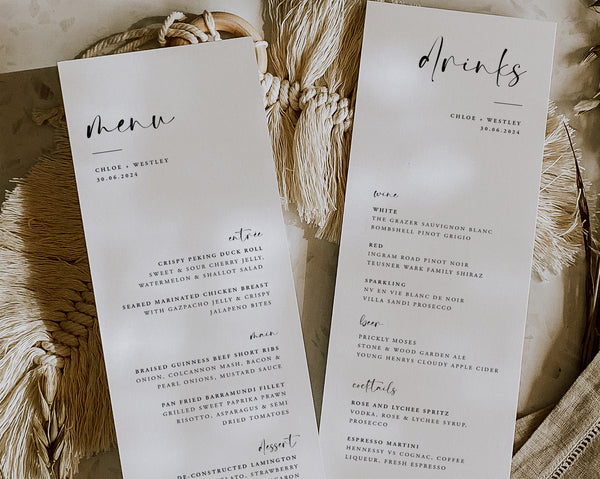 menu
CHLOE + WESTLEY
30.06.2024
entrée
CRISPY PEKING DUCK ROLL
SWEET & SOUR CHERRY JELLY,
WATERMELON & SHALLOT SALAD
SEARED MARINATED CHICKEN BREAST
WITH GAZPACHO JELLY & CRISPY
JALAPENO BITES
main
BRAISED GUINNESS BEEF SHORT RIBS
ONION, COLCANNON MASH, BACON &
PEARL ONIONS, MUSTARD SAUCE
PAN FRIED BARRAMUNDI FILLET
GRILLED SWEET PAPRIKA PRAWN
RISOTTO, ASPARAGUS & SEMI
DRIED TOMATOES
dessert
DE-CONSTRUCTED LAMINGTON
STRAWBERRY
drinks
CHLOE + WESTLEY
30.06.2024
wine
WHITE
THE GRAZER SAUVIGNON BLANC
BOMBSHELL PINOT GRIGIO
RED
INGRAM ROAD PINOT NOIR
TEUSNER WARK FAMILY SHIRAZ
SPARKLING
NV EN VIE BLANC DE NOIR
VILLA SANDI PROSECCO
beer
PRICKLY MOSES
STONE & WOOD GARDEN ALE
YOUNG HENRYS CLOUDY APPLE CIDER
cocktails
ROSE AND LYCHEE SPRITZ
VODKA, ROSE & LYCHEE SYRUP,
PROSECCO
ESPRESSO MARTINI
HENNESSY VS COGNAC, COFFEE
LIQUEUR, FRESH ESPRESSO